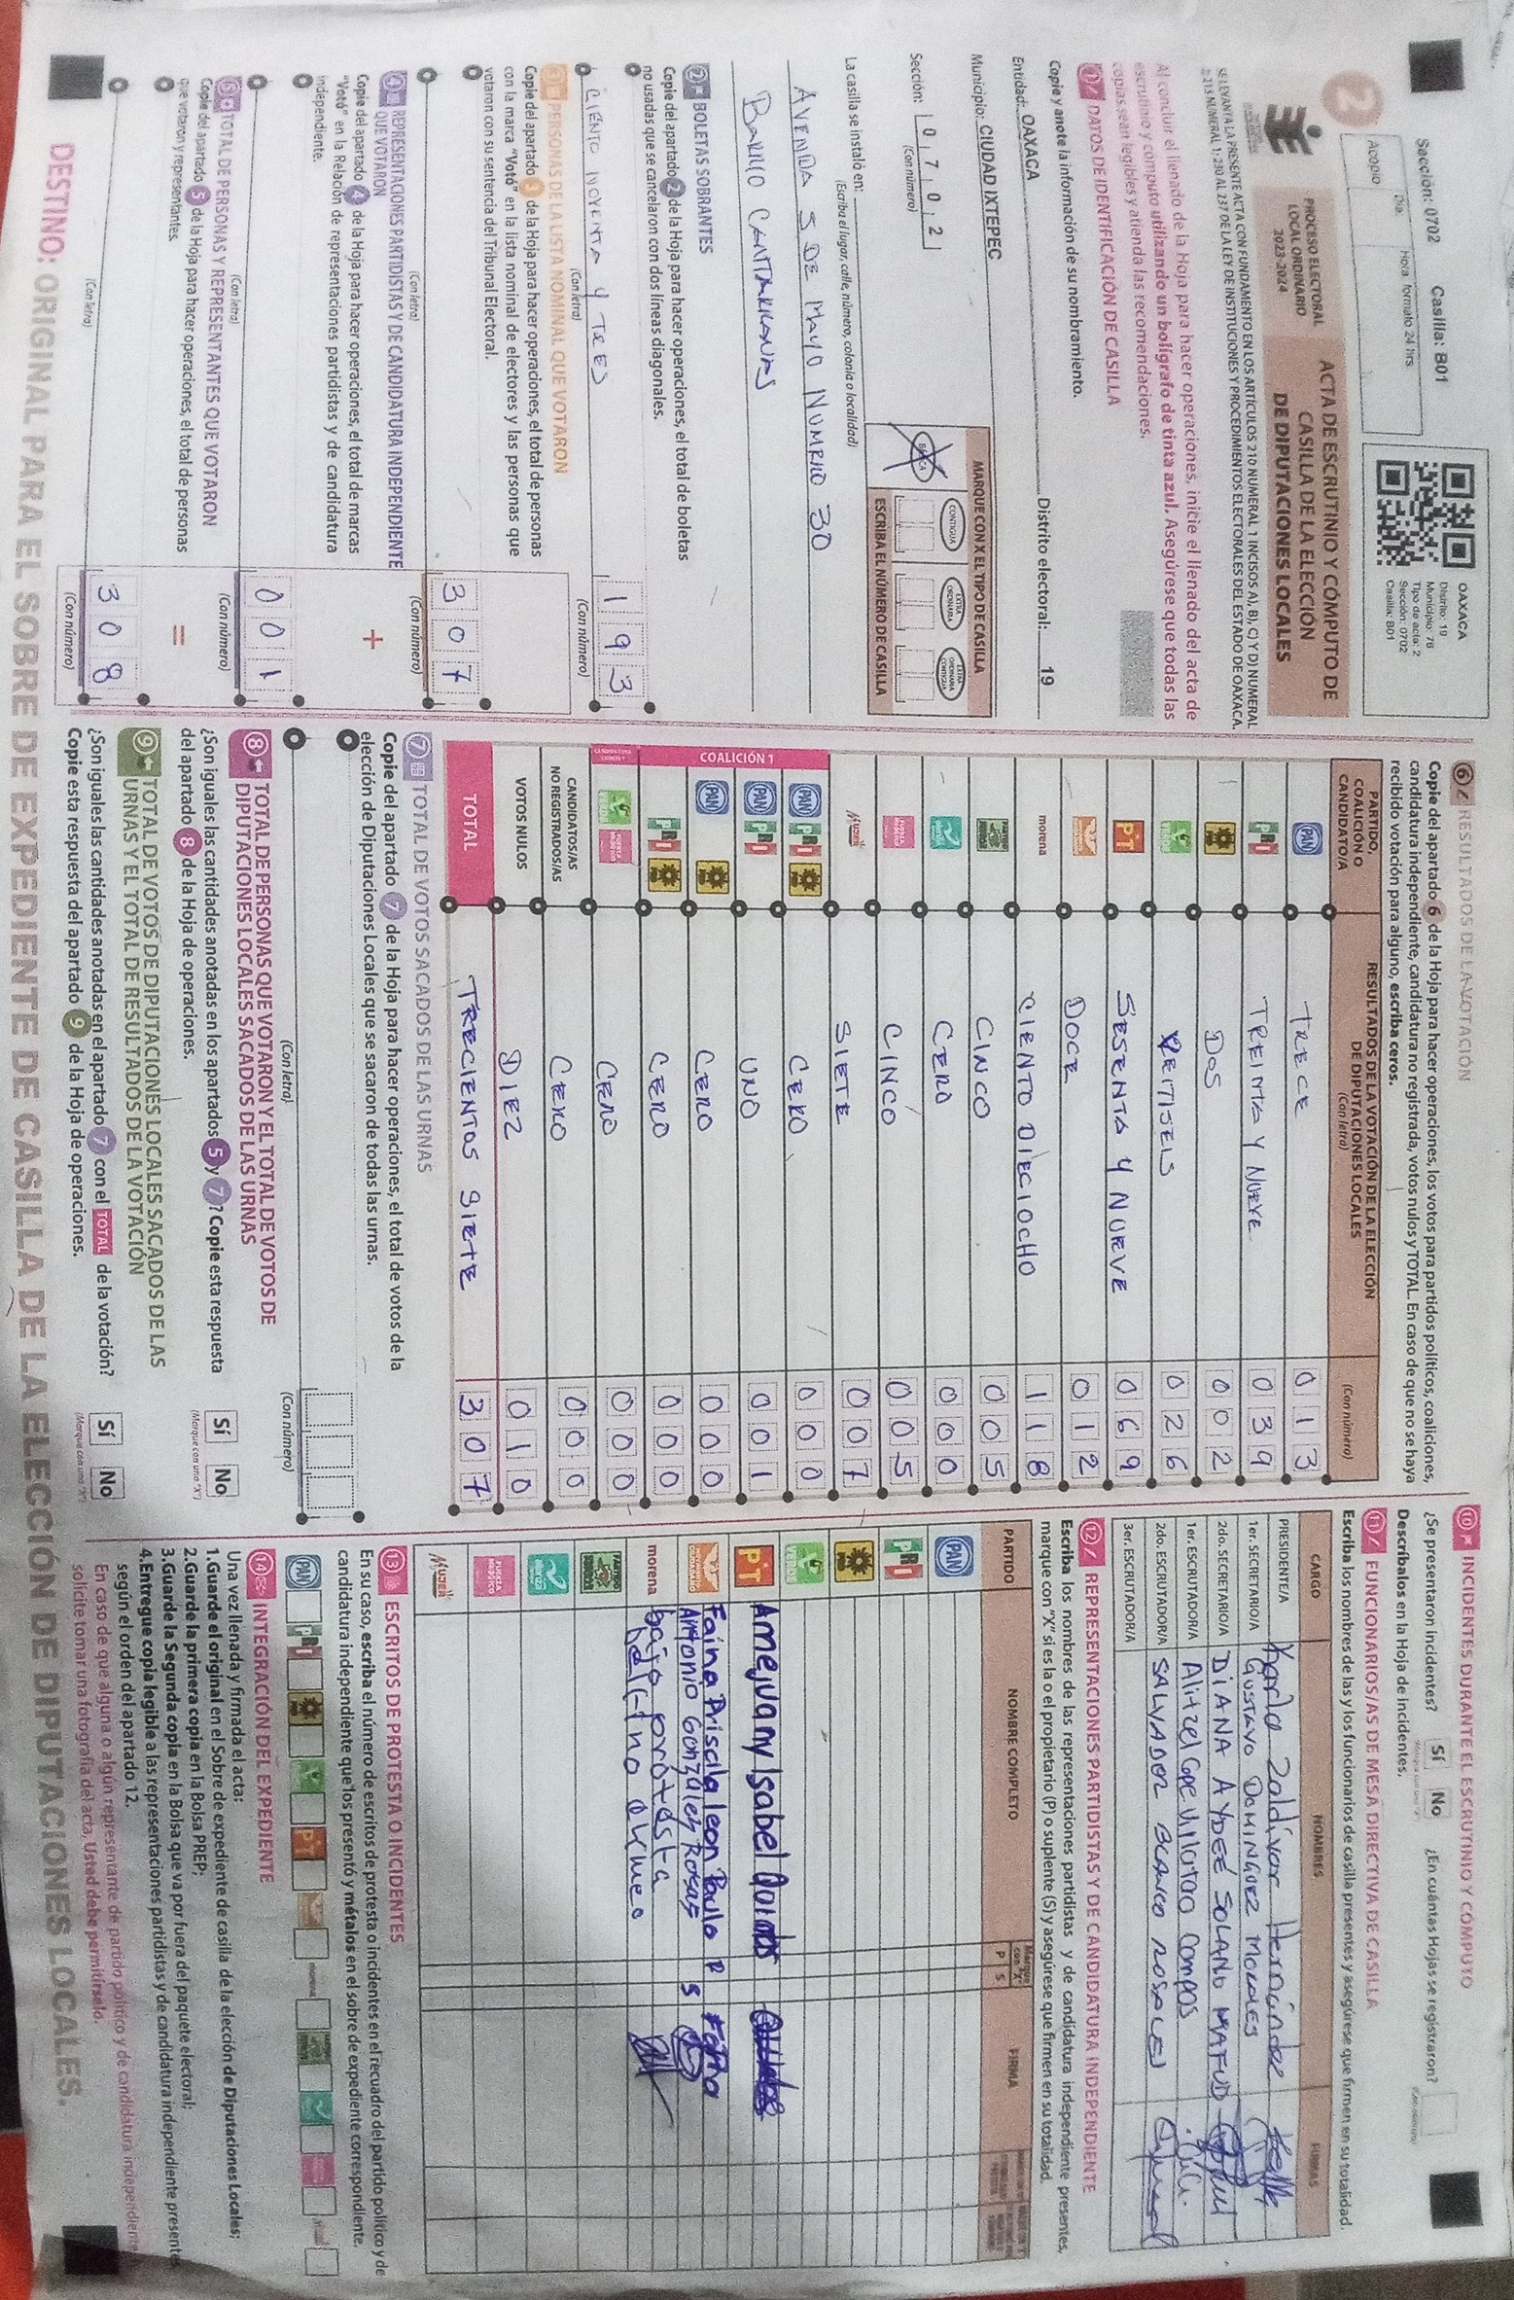 Sección: 0702 Casilla: B01
Día:
Hora formato 24 hrs
Acopio
OAXACA
Distrito: 19
Municipio: 78
Tipo de acta: 2
Sección: 0702
Casilla: B01
2
PROCESO ELECTORAL
LOCAL ORDINARIO
2023-2024
ACTA DE ESCRUTINIO Y CÓMPUTO DE
CASILLA DE LA ELECCIÓN
DE DIPUTACIONES LOCALES
Al concluir el llenado de la Hoja para hacer operaciones, inicie el llenado del acta de
escrutinio y cómputo utilizando un bolígrafo de tinta azul. Asegúrese que todas las
copias sean legibles y atienda las recomendaciones.
1 DATOS DE IDENTIFICACIÓN DE CASILLA
Copie y anote la información de su nombramiento.
Entidad: OAXACA Distrito electoral: 19
Municipio: CIUDAD IXTEPEC
Sección: 0702
(Con número)
MARQUE CON X EL TIPO DE CASILLA
CONTIGUA
ESCRIBA EL NÚMERO DE CASILLA
La casilla se instaló en:
(Escriba el lugar, calle, número, colonia o localidad)
AVENIDA 5 DE MAYO NUMERO 30
BARRIO CANTARRANAS
2 BOLETAS SOBRANTES
Copie del apartado 2 de la Hoja para hacer operaciones, el total de boletas
no usadas que se cancelaron con dos líneas diagonales.
CIENTO NOVENTA Y TRES 193
(Con letra) (Con número)
3 PERSONAS DE LA LISTA NOMINAL QUE VOTARON
Copie del apartado 3 de la Hoja para hacer operaciones, el total de personas
con la marca "Votó" en la lista nominal de electores y las personas que
votaron con su sentencia del Tribunal Electoral.
307
(Con letra) (Con número)
4 REPRESENTACIONES PARTIDISTAS Y DE CANDIDATURA INDEPENDIENTE
QUE VOTARON
Copie del apartado 4 de la Hoja para hacer operaciones, el total de marcas
"Votó" en la Relación de representaciones partidistas y de candidatura
independiente.
+
001
(Con letra) (Con número)
5 TOTAL DE PERSONAS Y REPRESENTANTES QUE VOTARON
Copie del apartado 5 de la Hoja para hacer operaciones, el total de personas
que votaron y representantes.
=
308
(Con letra) (Con número)
6 RESULTADOS DE LA VOTACIÓN
Copie del apartado 6 de la Hoja para hacer operaciones, los votos para partidos políticos, coaliciones,
candidatura independiente, candidatura no registrada, votos nulos y TOTAL. En caso de que no se haya
recibido votación para alguno, escriba ceros.
PARTIDO,
COALICIÓN O
CANDIDATO/A
RESULTADOS DE LA VOTACIÓN DE LA ELECCIÓN
DE DIPUTACIONES LOCALES
(Con letra)
(Con número)
PAN TRECE 013
PRI TREINTA Y NUEVE 039
PRD DOS 002
VERDE VEITISEIS 026
PT SESENTA Y NUEVE 069
DOCE 012
morena CIENTO DIECIOCHO 118
CINCO 005
CERO 000
CINCO 005
MUJER SIETE 007
COALICIÓN 1
PAN PRI PRD CERO 000
PAN PRI UNO 001
PAN PRD CERO 000
PRI PRD CERO 000
CERO 000
CANDIDATOS/AS
NO REGISTRADOS/AS
CERO 000
VOTOS NULOS DIEZ 010
TOTAL TRECIENTOS SIETE 307
7 TOTAL DE VOTOS SACADOS DE LAS URNAS
Copie del apartado 7 de la Hoja para hacer operaciones, el total de votos de la
elección de Diputaciones Locales que se sacaron de todas las urnas.
(Con letra) (Con número)
8 TOTAL DE PERSONAS QUE VOTARON Y EL TOTAL DE VOTOS DE
DIPUTACIONES LOCALES SACADOS DE LAS URNAS
¿Son iguales las cantidades anotadas en los apartados 5 y 7? Copie esta respuesta
del apartado 8 de la Hoja de operaciones.
Sí No
(Marque con una "X")
9 TOTAL DE VOTOS DE DIPUTACIONES LOCALES SACADOS DE LAS
URNAS Y EL TOTAL DE RESULTADOS DE LA VOTACIÓN
¿Son iguales las cantidades anotadas en el apartado 7 con el TOTAL de la votación?
Copie esta respuesta del apartado 9 de la Hoja de operaciones.
Sí No
10 INCIDENTES DURANTE EL ESCRUTINIO Y CÓMPUTO
¿Se presentaron incidentes? Sí No ¿En cuántas Hojas se registraron?
Descríbalos en la Hoja de incidentes.
11 FUNCIONARIOS/AS DE MESA DIRECTIVA DE CASILLA
Escriba los nombres de las y los funcionarios de casilla presentes y asegúrese que firmen en su totalidad.
CARGO NOMBRES FIRMAS
PRESIDENTE/A Karla Zaldívar Hernández
1er. SECRETARIO/A GUSTAVO DOMINGUEZ MORALES
2do. SECRETARIO/A DIANA AYDEÉ SOLANO MAFUD
1er. ESCRUTADOR/A Alitzel Campos
2do. ESCRUTADOR/A SALVADOR BLANCO ROSALES
3er. ESCRUTADOR/A
12 REPRESENTACIONES PARTIDISTAS Y DE CANDIDATURA INDEPENDIENTE
Escriba los nombres de las representaciones partidistas y de candidatura independiente presentes,
marque con "X" si es la o el propietario (P) o suplente (S) y asegúrese que firmen en su totalidad.
PARTIDO NOMBRE COMPLETO P S FIRMA
PAN
PRI
PRD
VERDE
PT Amejuany Isabel
Faina Priscila leon Paulo P
Antonio González Rosas S
morena bajo protesta
MUJER
13 ESCRITOS DE PROTESTA O INCIDENTES
En su caso, escriba el número de escritos de protesta o incidentes en el recuadro del partido político y de
candidatura independiente que los presentó y métalos en el sobre de expediente correspondiente.
PAN PRI PT
14 INTEGRACIÓN DEL EXPEDIENTE
Una vez llenada y firmada el acta:
1.Guarde el original en el Sobre de expediente de casilla de la elección de Diputaciones Locales;
2.Guarde la primera copia en la Bolsa PREP;
3.Guarde la Segunda copia en la Bolsa que va por fuera del paquete electoral;
4.Entregue copia legible a las representaciones partidistas y de candidatura independiente presentes
según el orden del apartado 12.
En caso de que alguna o algún representante de partido político y de candidatura independiente
solicite tomar una fotografía del acta, Usted debe permitírselo.
DESTINO: ORIGINAL PARA EL SOBRE DE EXPEDIENTE DE CASILLA DE LA ELECCIÓN DE DIPUTACIONES LOCALES.